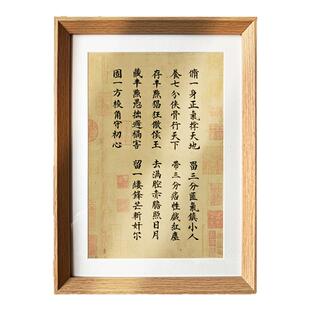 脩一身正氣撐天地　畱三分匪氣鎮小人
養七分俠骨行天下　帶三分痞性戲紅塵
存半㸃猖狂傲侯王　去滿腔赤膽照日月
藏半㸃愚拙避禍害　留一縷鋒芒斬奸尔
固一方稜角守初心